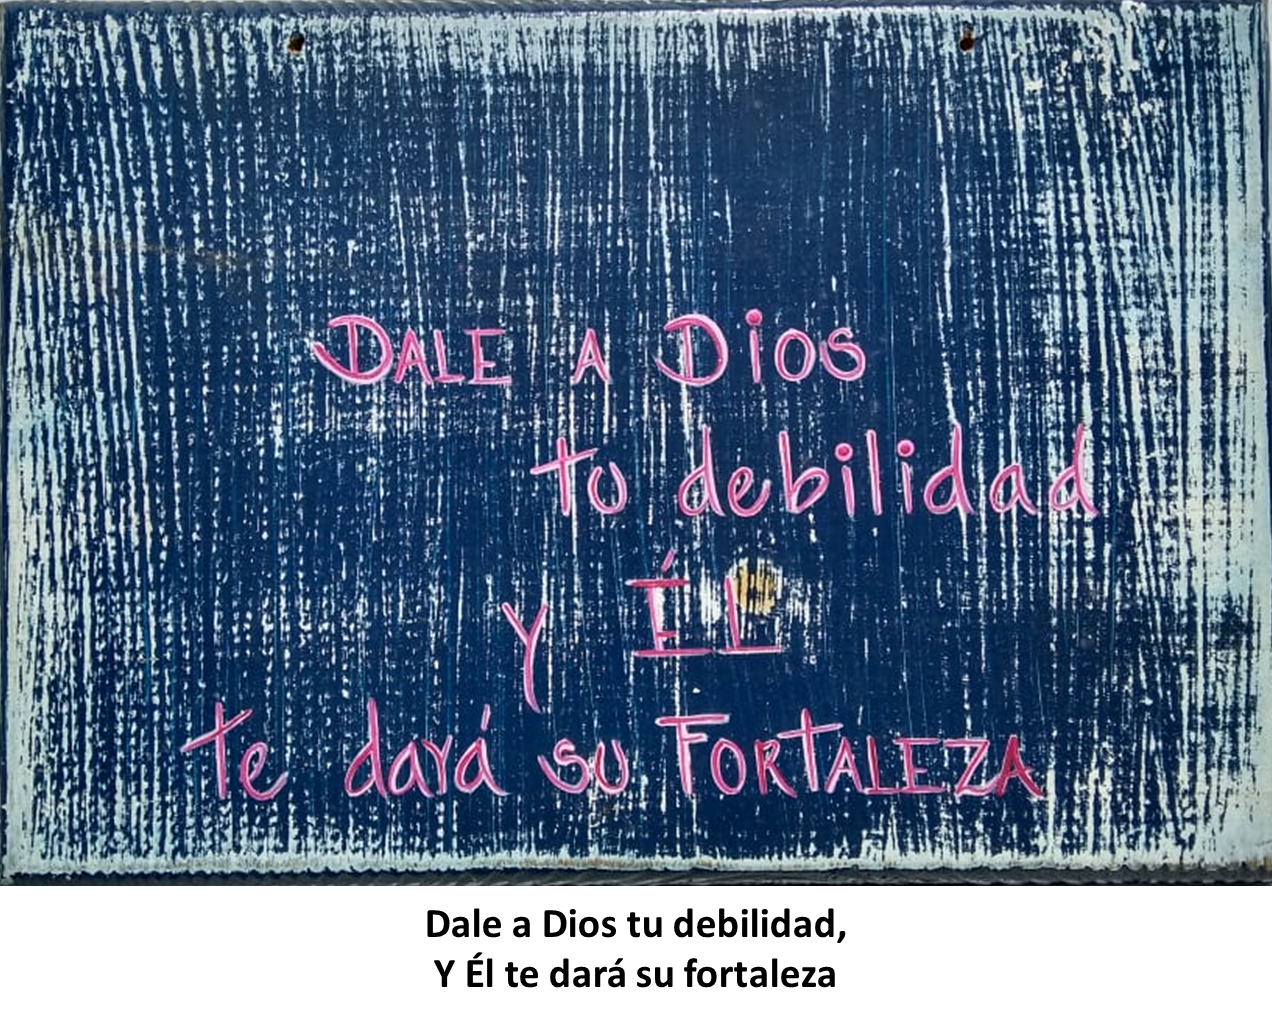 DALE A DIOS
tu debilidad
y ÉL
te dará su FORTALEZA
Dale a Dios tu debilidad,
Y Él te dará su fortaleza